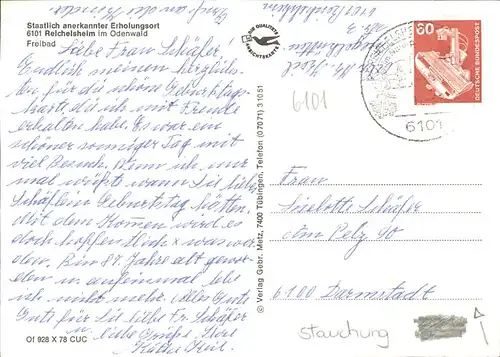 Staatlich anerkannter Erholungsort
6101 Reichelsheim im Odenwald
Freibad
Liebe Frau Schäfer,
Endlich meinen herzlich-
en für die schöne Geburtstags-
karte die ich mit Freude
erhalten habe. Es war ein
schöner sonniger Tag mit
viel Besuch. Wenn ich nur
mal wüßte wann Sie liebe
Schäflein Geburtstag hätten.
Mit dem Kommen wird es
doch hoffentlich was wer-
den. Bin 87. Jahre alt gewor-
den u. auf einmal lebe
ich nicht mehr. Alles Gute
für Sie liebe Fr. Schäfer
u. liebe Grüße Ihre
Käthe Keil.
Of 928 X 78 CUC
DIE QUALITÄTS
ANSICHTSKARTE
© Verlag Gebr. Metz, 7400 Tübingen, Telefon (07071) 31051
6101
6101
60
DEUTSCHE BUNDESPOST
Frau
Lieselotte Schäfer
Am Pelz 90
6100 Darmstadt
stauchung